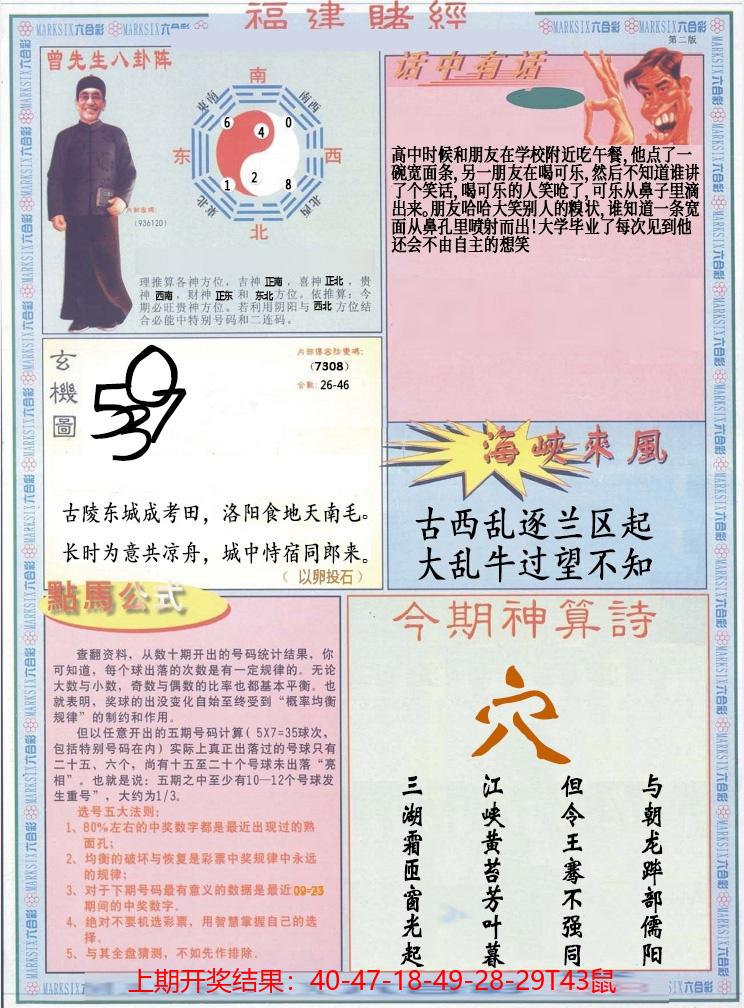 福建賭經
MARKSIX六合彩
MARKSIX六合彩
MARKSIX六合彩
MARKSIX六合彩
第二版
曾先生八卦阵
南
东南
南西
东
西
东北
北西
北
6
4
0
1
2
8
内部密碼:
(936120)
理推算各神方位，吉神 正南 ，喜神 正北，贵
神 西南 ，财神 正东 和 东北 方位。依推算：今
期必旺贵神方位。若利用阴阳与 西北 方位结
合必能中特别号码和二连码。
话中有话
高中时候和朋友在学校附近吃午餐,他点了一
碗宽面条,另一朋友在喝可乐,然后不知道谁讲
了个笑话,喝可乐的人笑呛了,可乐从鼻子里滴
出来。朋友哈哈大笑别人的糗状,谁知道一条宽
面从鼻孔里喷射而出!大学毕业了每次见到他
还会不由自主的想笑
玄機圖
内部傳密防變碼:
(7308)
合數: 26-46
古陵东城成考田，洛阳食地天南毛。
长时为意共凉舟，城中恃宿同郎来。
（ 以卵投石）
海峽來風
古西乱逐兰区起
大乱牛过望不知
點馬公式
查翻资料，从数十期开出的号码统计结果，你
可知道，每个球出落的次数是有一定规律的。无论
大数与小数，奇数与偶数的比率也都基本平衡。也
就表明，奖球的出没变化自始至终受到“概率均衡
规律”的制约和作用。
但以任意开出的五期号码计算( 5X7=35球次，
包括特别号码在内) 实际上真正出落过的号球只有
二十五、六个，尚有十五至二十个号球未出落“亮
相”。也就是说：五期之中至少有10—12个号球发
生重号”，大约为1/3。
选号五大法则：
1、80%左右的中奖数字都是最近出现过的熟
面孔；
2、均衡的破坏与恢复是彩票中奖规律中永远
的规律；
3、对于下期号码最有意义的数据是最近09-23
期间的中奖数字。
4、绝对不要机选彩票，用智慧掌握自己的选
择。
5、与其全盘猜测，不如先作排除．
今期神算詩
穴
与朝龙跸部儒阳
但令王骞不强同
江峡黄苔芳叶暮
三湖霜匝窗光起
上期开奖结果：40-47-18-49-28-29T43鼠